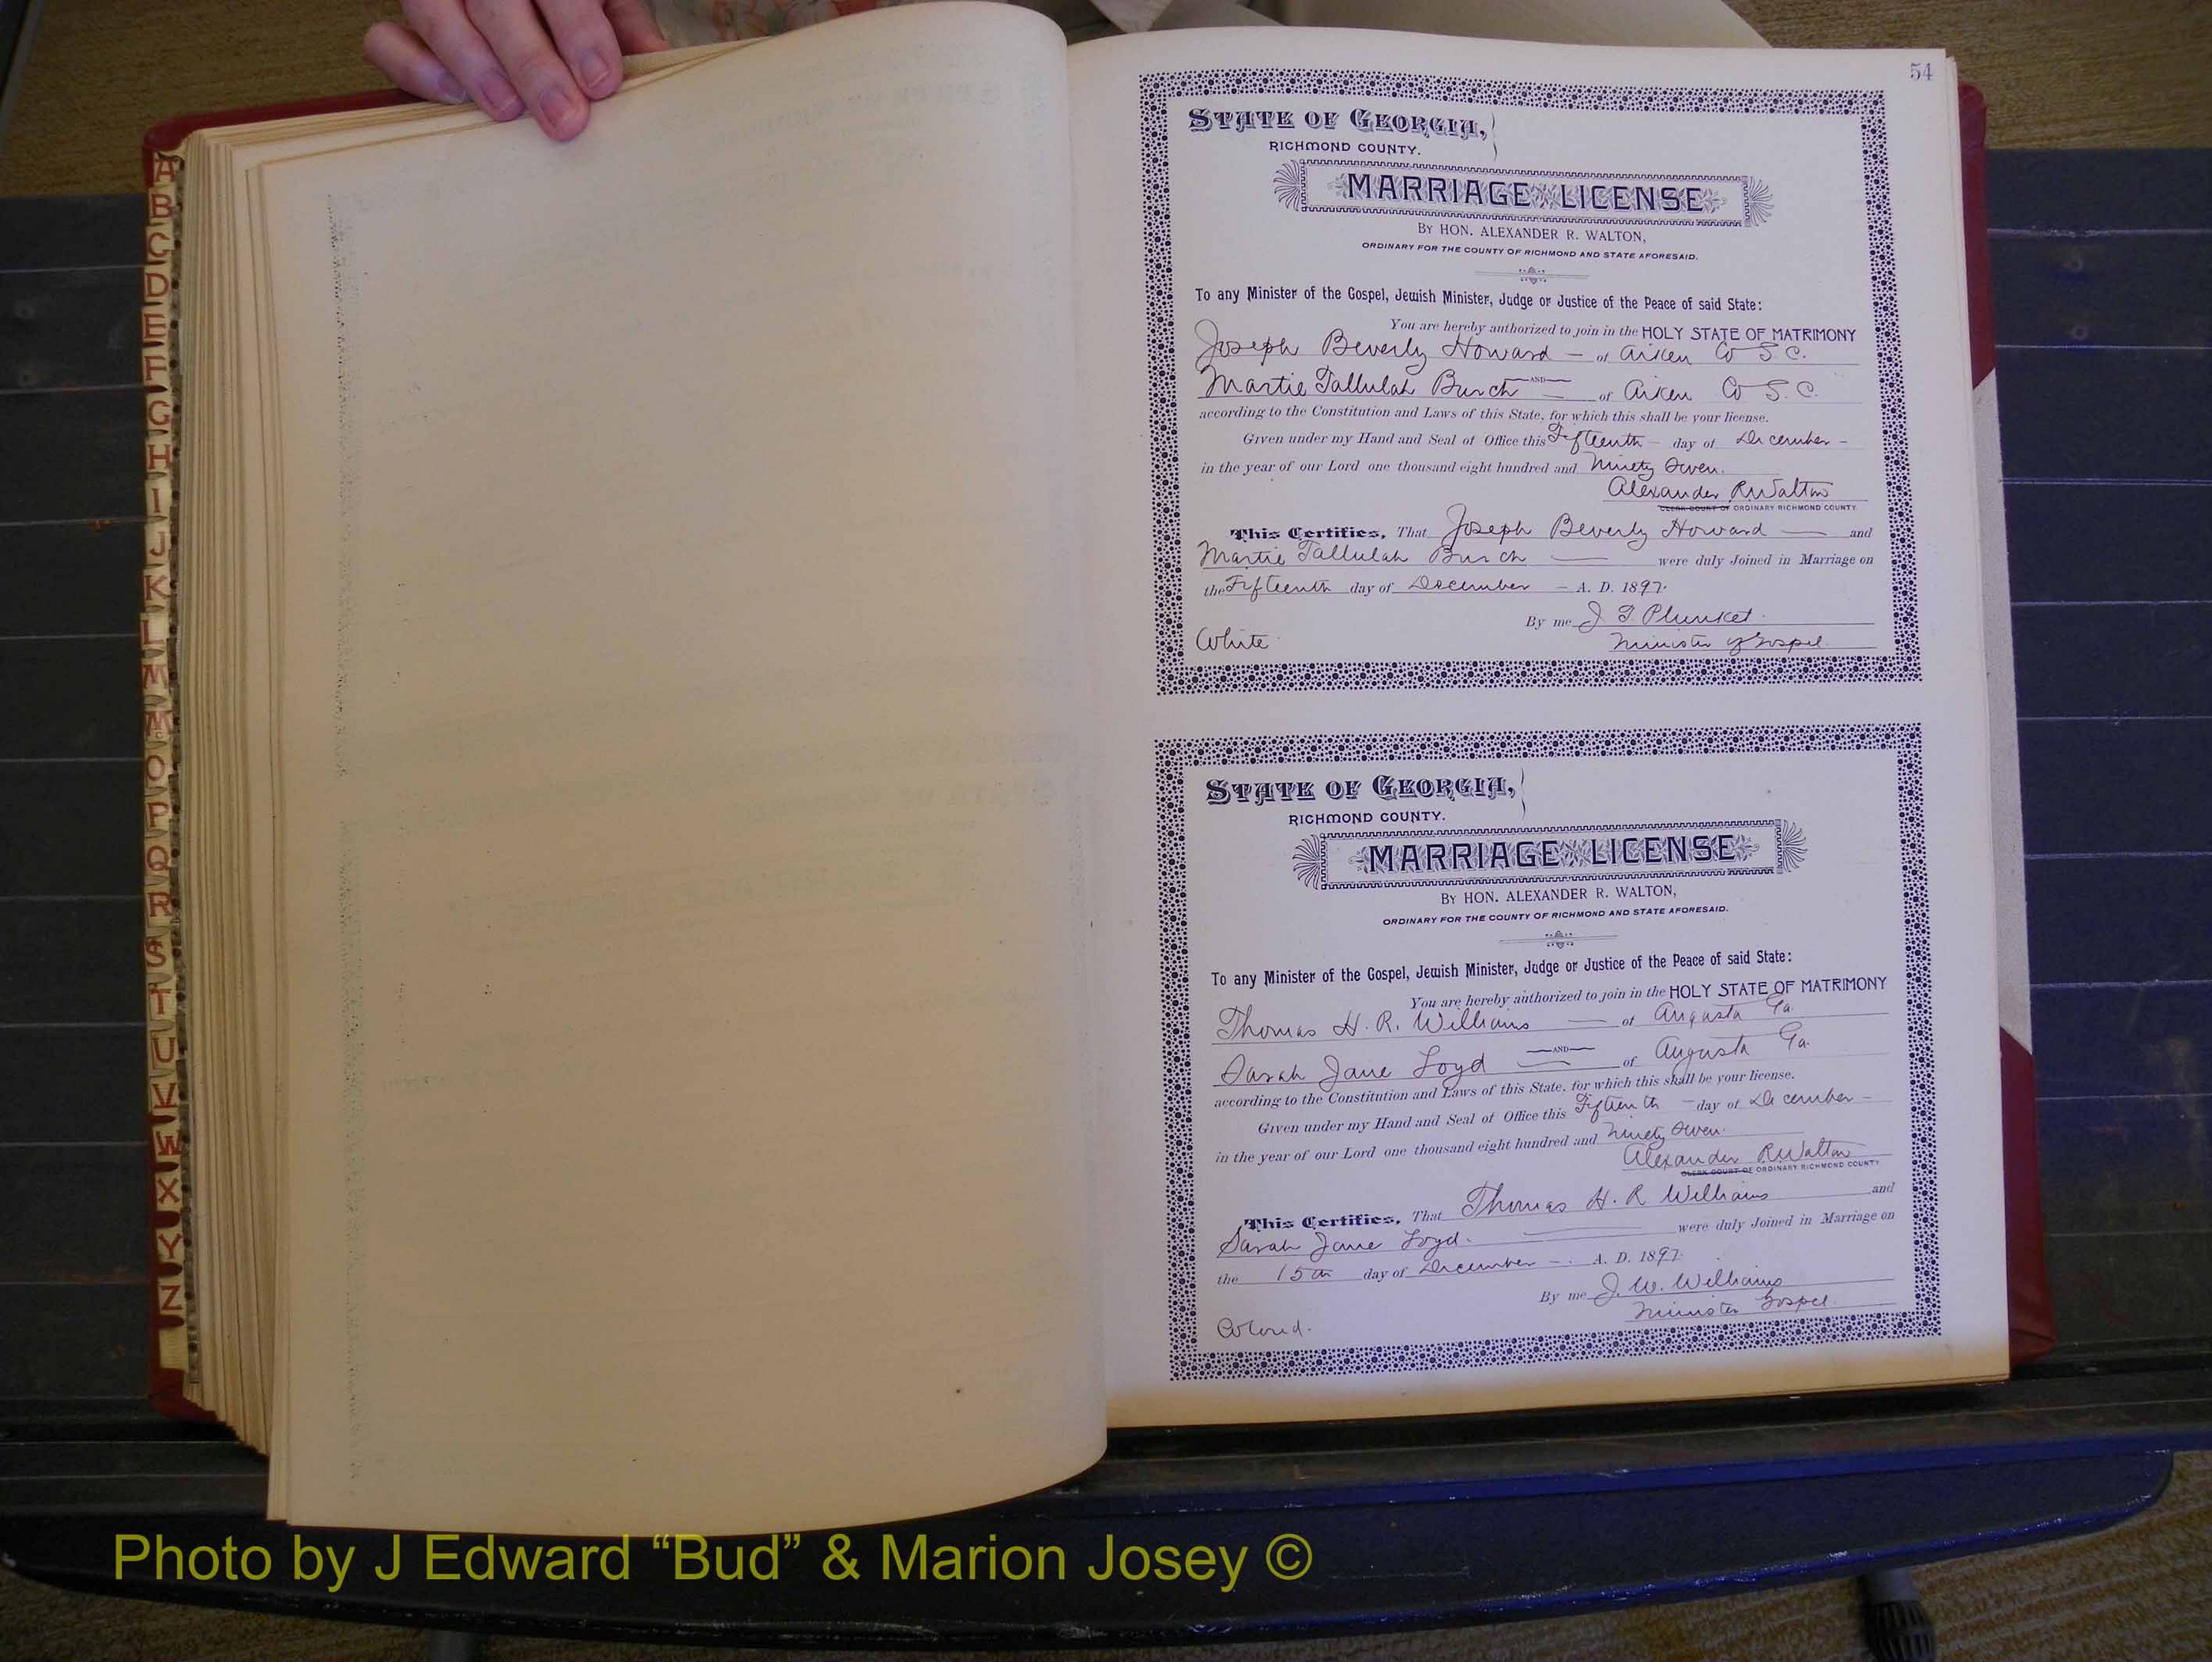 A
B
C
D
E
F
G
H
I
J
K
L
M
Mc
O
P
Q
R
S
T
U
V
W
X
Y
Z
54
STATE OF GEORGIA,
RICHMOND COUNTY.
MARRIAGE LICENSE
BY HON. ALEXANDER R. WALTON,
ORDINARY FOR THE COUNTY OF RICHMOND AND STATE AFORESAID.
To any Minister of the Gospel, Jewish Minister, Judge or Justice of the Peace of said State:
You are hereby authorized to join in the HOLY STATE OF MATRIMONY
Joseph Beverly Howard — of Aiken Co S.C.
AND
Martie Tallulah Burch — of Aiken Co S.C.
according to the Constitution and Laws of this State, for which this shall be your license.
Given under my Hand and Seal of Office this Fifteenth — day of December —
in the year of our Lord one thousand eight hundred and Ninety Seven.
Alexander R Walton
CLERK COURT OF ORDINARY RICHMOND COUNTY.
This Certifies, That Joseph Beverly Howard — and
Martie Tallulah Burch — were duly Joined in Marriage on
the Fifteenth day of December — A. D. 1897.
By me J. T. Plunket.
White
Minister of Gospel.
STATE OF GEORGIA,
RICHMOND COUNTY.
MARRIAGE LICENSE
BY HON. ALEXANDER R. WALTON,
ORDINARY FOR THE COUNTY OF RICHMOND AND STATE AFORESAID.
To any Minister of the Gospel, Jewish Minister, Judge or Justice of the Peace of said State:
You are hereby authorized to join in the HOLY STATE OF MATRIMONY
Thomas H. R. Williams — of Augusta Ga.
AND
Sarah Jane Loyd — of Augusta Ga.
according to the Constitution and Laws of this State, for which this shall be your license.
Given under my Hand and Seal of Office this Fifteenth — day of December —
in the year of our Lord one thousand eight hundred and Ninety Seven.
Alexander R Walton
CLERK COURT OF ORDINARY RICHMOND COUNTY
This Certifies, That Thomas H. R Williams and
Sarah Jane Loyd. — were duly Joined in Marriage on
the 15th day of December — A. D. 1897.
By me J. W. Williams
Minister Gospel.
Colored.
Photo by J Edward “Bud” & Marion Josey ©